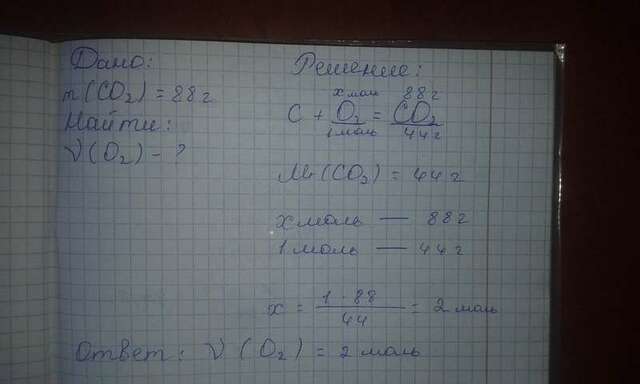 Дано:
m(CO₂) = 88 г
Найти:
ν(O₂) - ?
Решение:
x моль 88 г
C + O₂ = CO₂
1 моль 44 г
Mr(CO₂) = 44 г
x моль — 88 г
1 моль — 44 г
x = 1 · 88 / 44 = 2 моль
Ответ: ν(O₂) = 2 моль